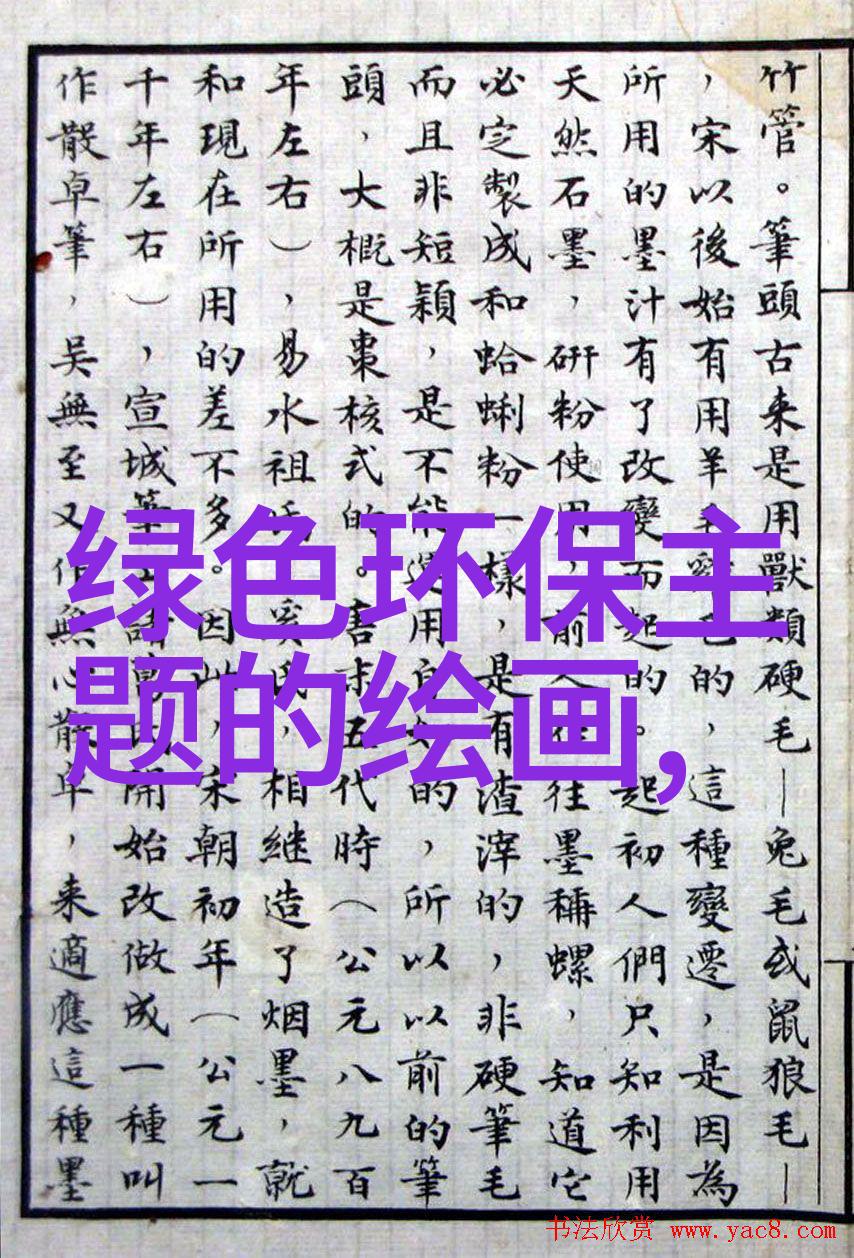 竹管。筆頭古来是用獸類硬毛—兔毛或鼠狼毛—
，宋以後始有用羊毛雞毛的，這種變遷，是因為
所用的墨汁有了改變而起的。起初人們只知利用
天然石墨，研粉使用，前人往往墨稱螺，知道它
必定製成和蛤蜊粉一樣，是有渣滓的，非硬筆毛
而且非短穎，是不能適用自如的，所以以前的筆
頭，大概是棗核式的。唐末五代時（公元八九百
年左右），易水祖氏奚氏，相継造了烟墨，就
和現在所用的差不多。因此，宋朝初年（公元一
千年左右），宣城筆工諸葛氏開始改做成一種叫
作散卓筆，吳無至又作無心散卓，来適應這種墨
绿色环保主
题的绘画,
书法欣赏 www.yac8.com